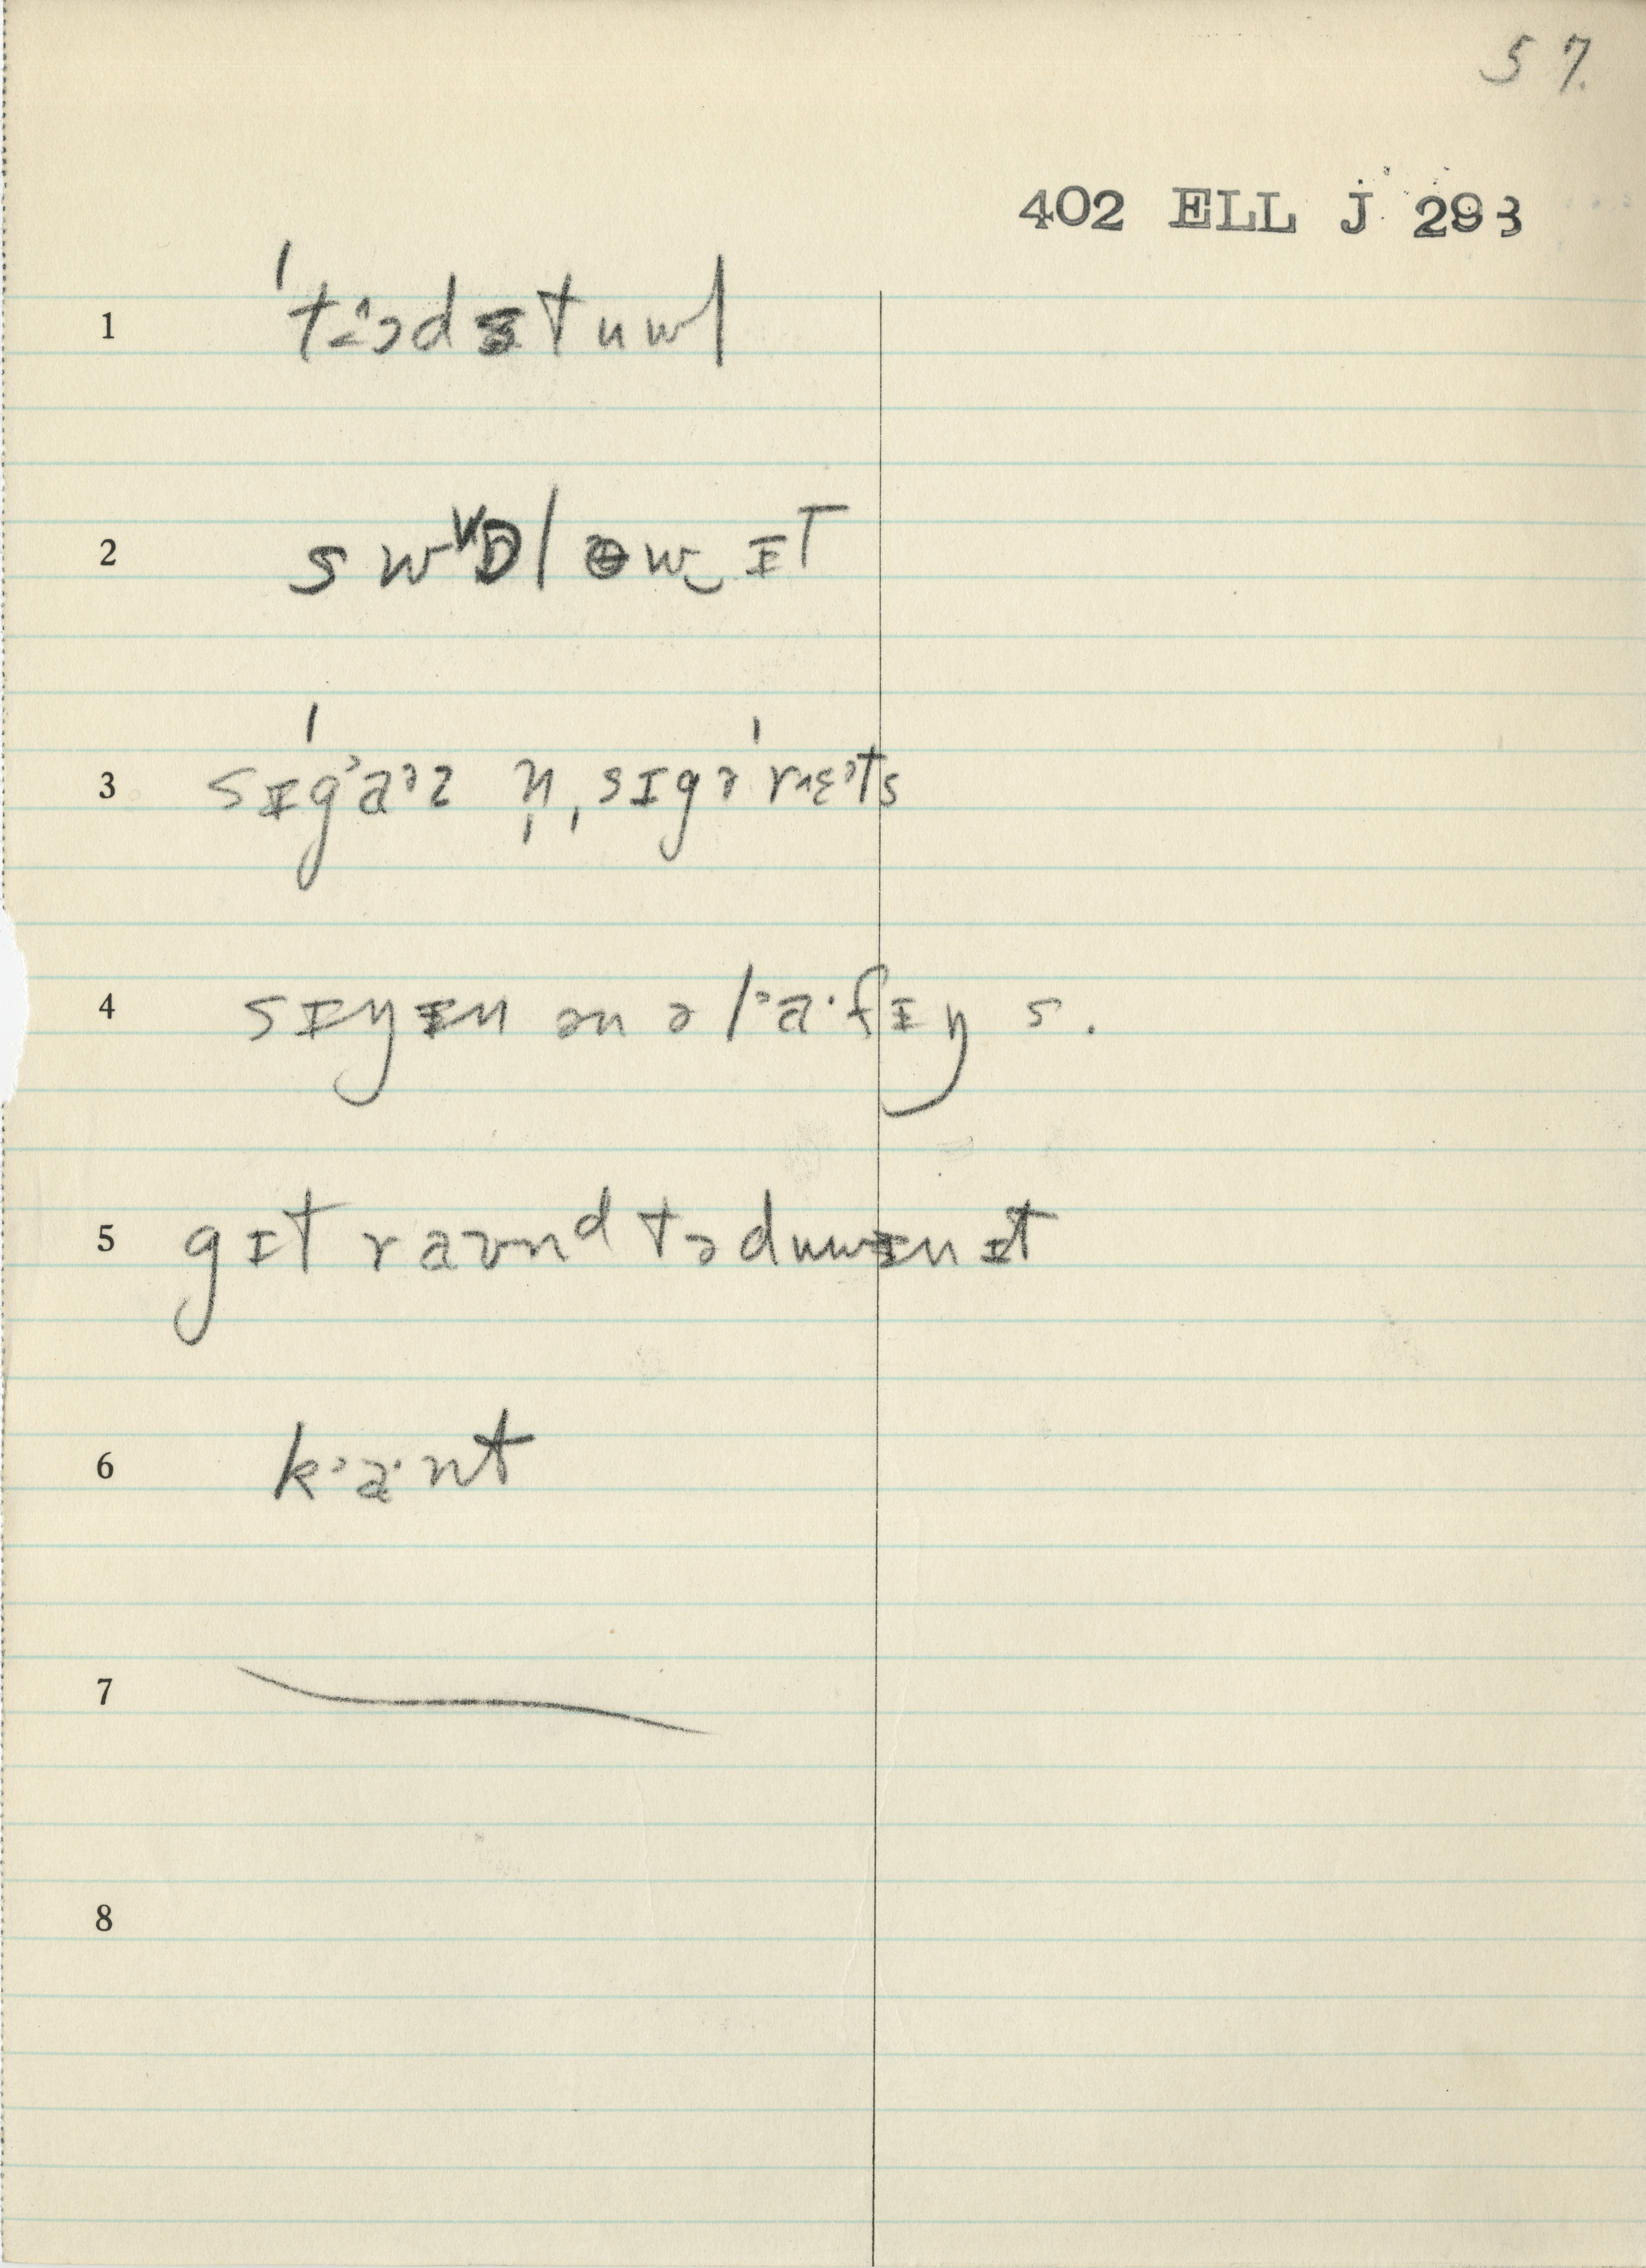 57.
402 ELL J 293
1 ˈtɔˑədɪtuwl
2 swɒləwɪt
3 sɪgˈaˑəz n̩ ˌsɪgəˈrɛts
4 sɪŋɪn ən ə lˈaˑfɪŋ s.
5 gɪt raʊnᵈ təduwɪnɪt
6 kˈaˑnt
7
8